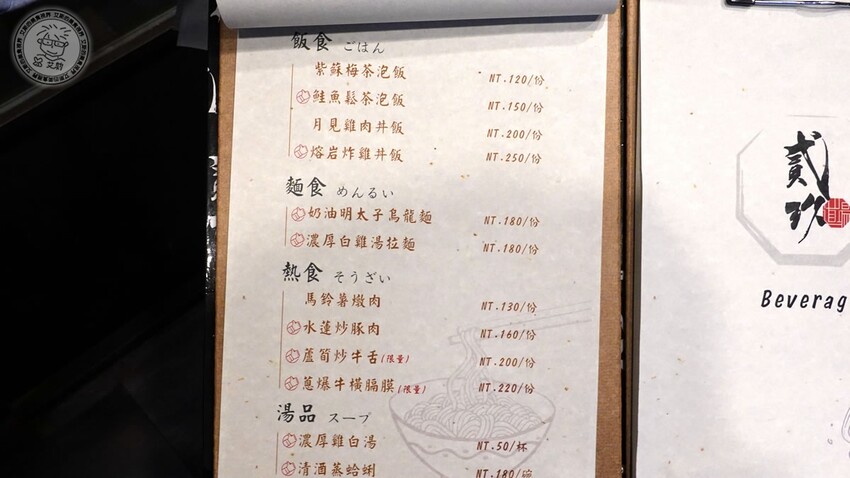 飯食 ごはん
紫蘇梅茶泡飯 NT.120/份
鮭魚鬆茶泡飯 NT.150/份
月見雞肉丼飯 NT.200/份
熔岩炸雞丼飯 NT.250/份
麵食 めんるい
奶油明太子烏龍麵 NT.180/份
濃厚白雞湯拉麵 NT.180/份
熱食 そうざい
馬鈴薯燉肉 NT.130/份
水蓮炒豚肉 NT.160/份
蘆筍炒牛舌(限量) NT.200/份
蔥爆牛橫膈膜(限量) NT.220/份
湯品 スープ
濃厚雞白湯 NT.50/杯
清酒蒸蛤蜊 NT.180/碗
貳玖
Beverag